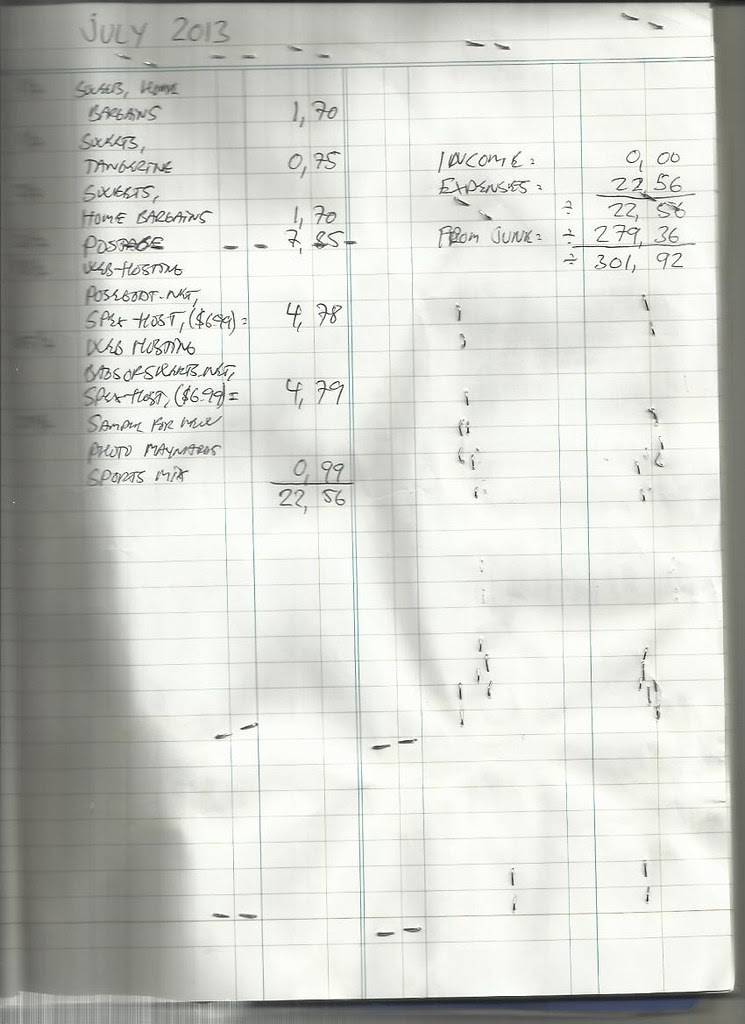 JULY 2013
SWEETS, HOME
BARGAINS 1,70
SWEETS,
TANGERINE 0,75
SWEETS,
HOME BARGAINS 1,70
POSTAGE 7,85
WEB-HOSTING
HOST, ($6.99) = 4,78
WEB HOSTING
HOST, ($6.99) = 4,79
SAMPLE FOR
PHOTO MAYNARDS
SPORTS MIX 0,99
22,56
INCOME = 0,00
EXPENSES = 22,56
÷ 22,56
FROM JUNE = ÷ 279,36
÷ 301,92